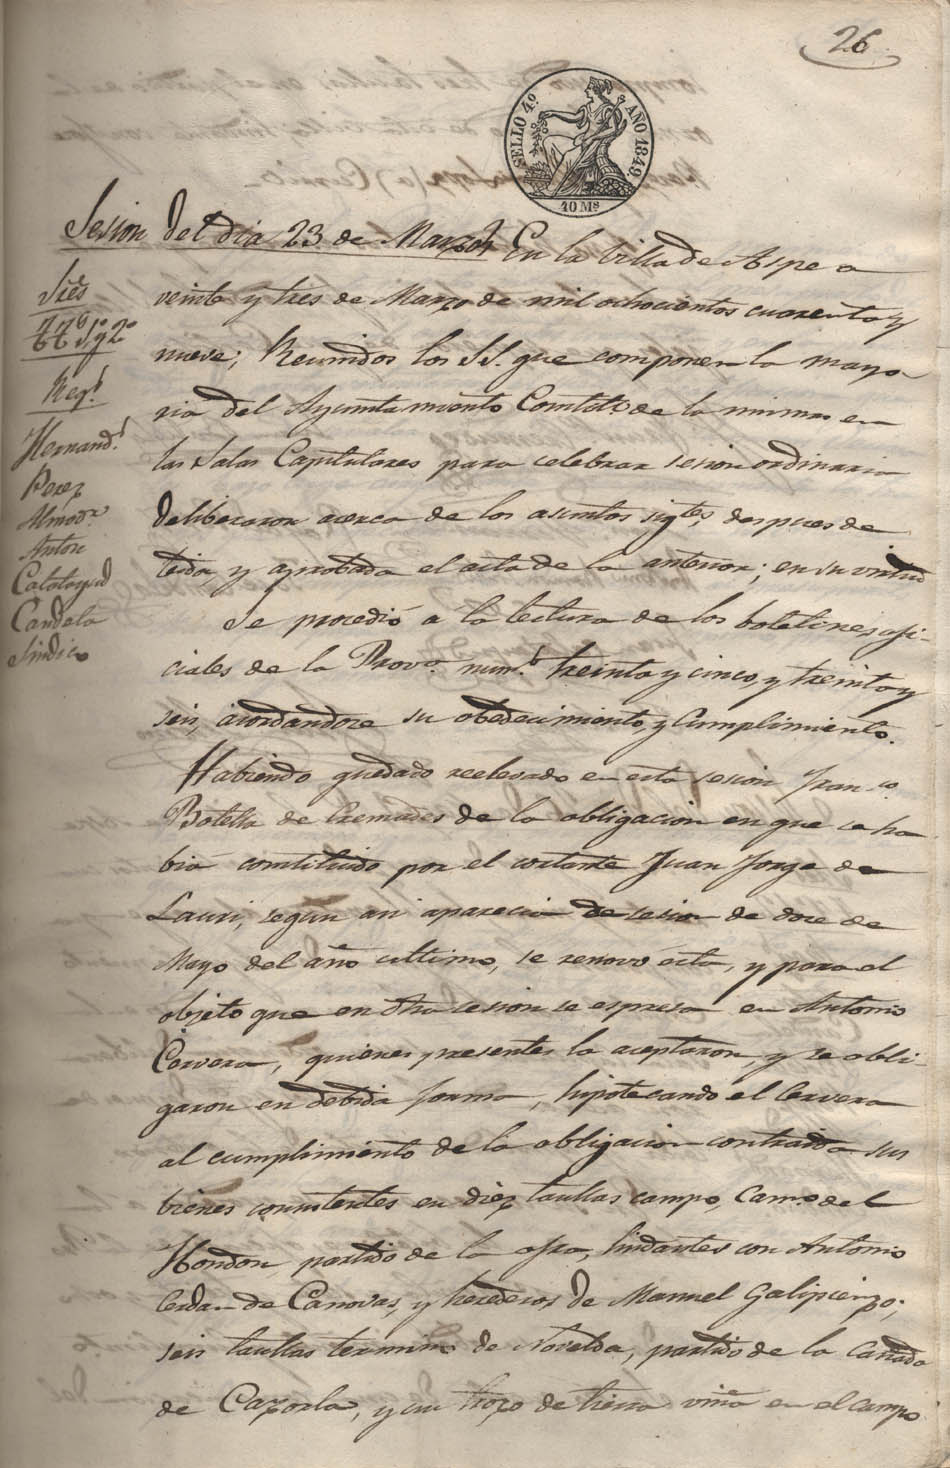 26
SELLO 4º AÑO 1849.
40 Ms
Sesion del dia 23 de Marzo
En la Villa de Aspe a
veinte y tres de Marzo de mil ochocientos cuarenta y
nueve; Reunidos los SS. que componen la mayo
ria del Ayuntamiento Constitl. de la misma en
las Salas Capitulares para celebrar sesion ordinaria
deliberaron acerca de los asuntos sigtes, despues de
leida, y aprobada el acta de la anterior; en su virtud
Se procedió a la lectura de los boletines ofi-
ciales de la Prova. nums. treinta y cinco, y treinta y
seis, acordandose su obedecimiento, y cumplimiento.
Habiendo quedado relevado en esta sesion Franco.
Botella de Cremades de la obligacion en que se ha
bia constituido por el cortante Juan Jorge de
Lauri, según asi aparecia de sesion de doce de
Mayo del año ultimo, se renovó esta, y para el
objeto que en dha sesion se espresa en Antonio
Cervera, quienes presentes la aceptaron, y se obli-
garon en debida forma, hipotecando el Cervera
al cumplimiento de la obligacion contraida sus
bienes consistentes en diez taullas campo, camo. del
Hondon, partido de la ofra, lindantes con Antonio
Cerdan de Canovas, y herederos de Manuel Galipienzo;
seis taullas termino de Novelda, partido de la Cañada
de Cazorla, y un trozo de tierra viña en el campo
Sres
TTes 1º y 2º
Regs.
Hernandz.
Perez
Almodr.
Anton
Calatayud
Candela
Sindico